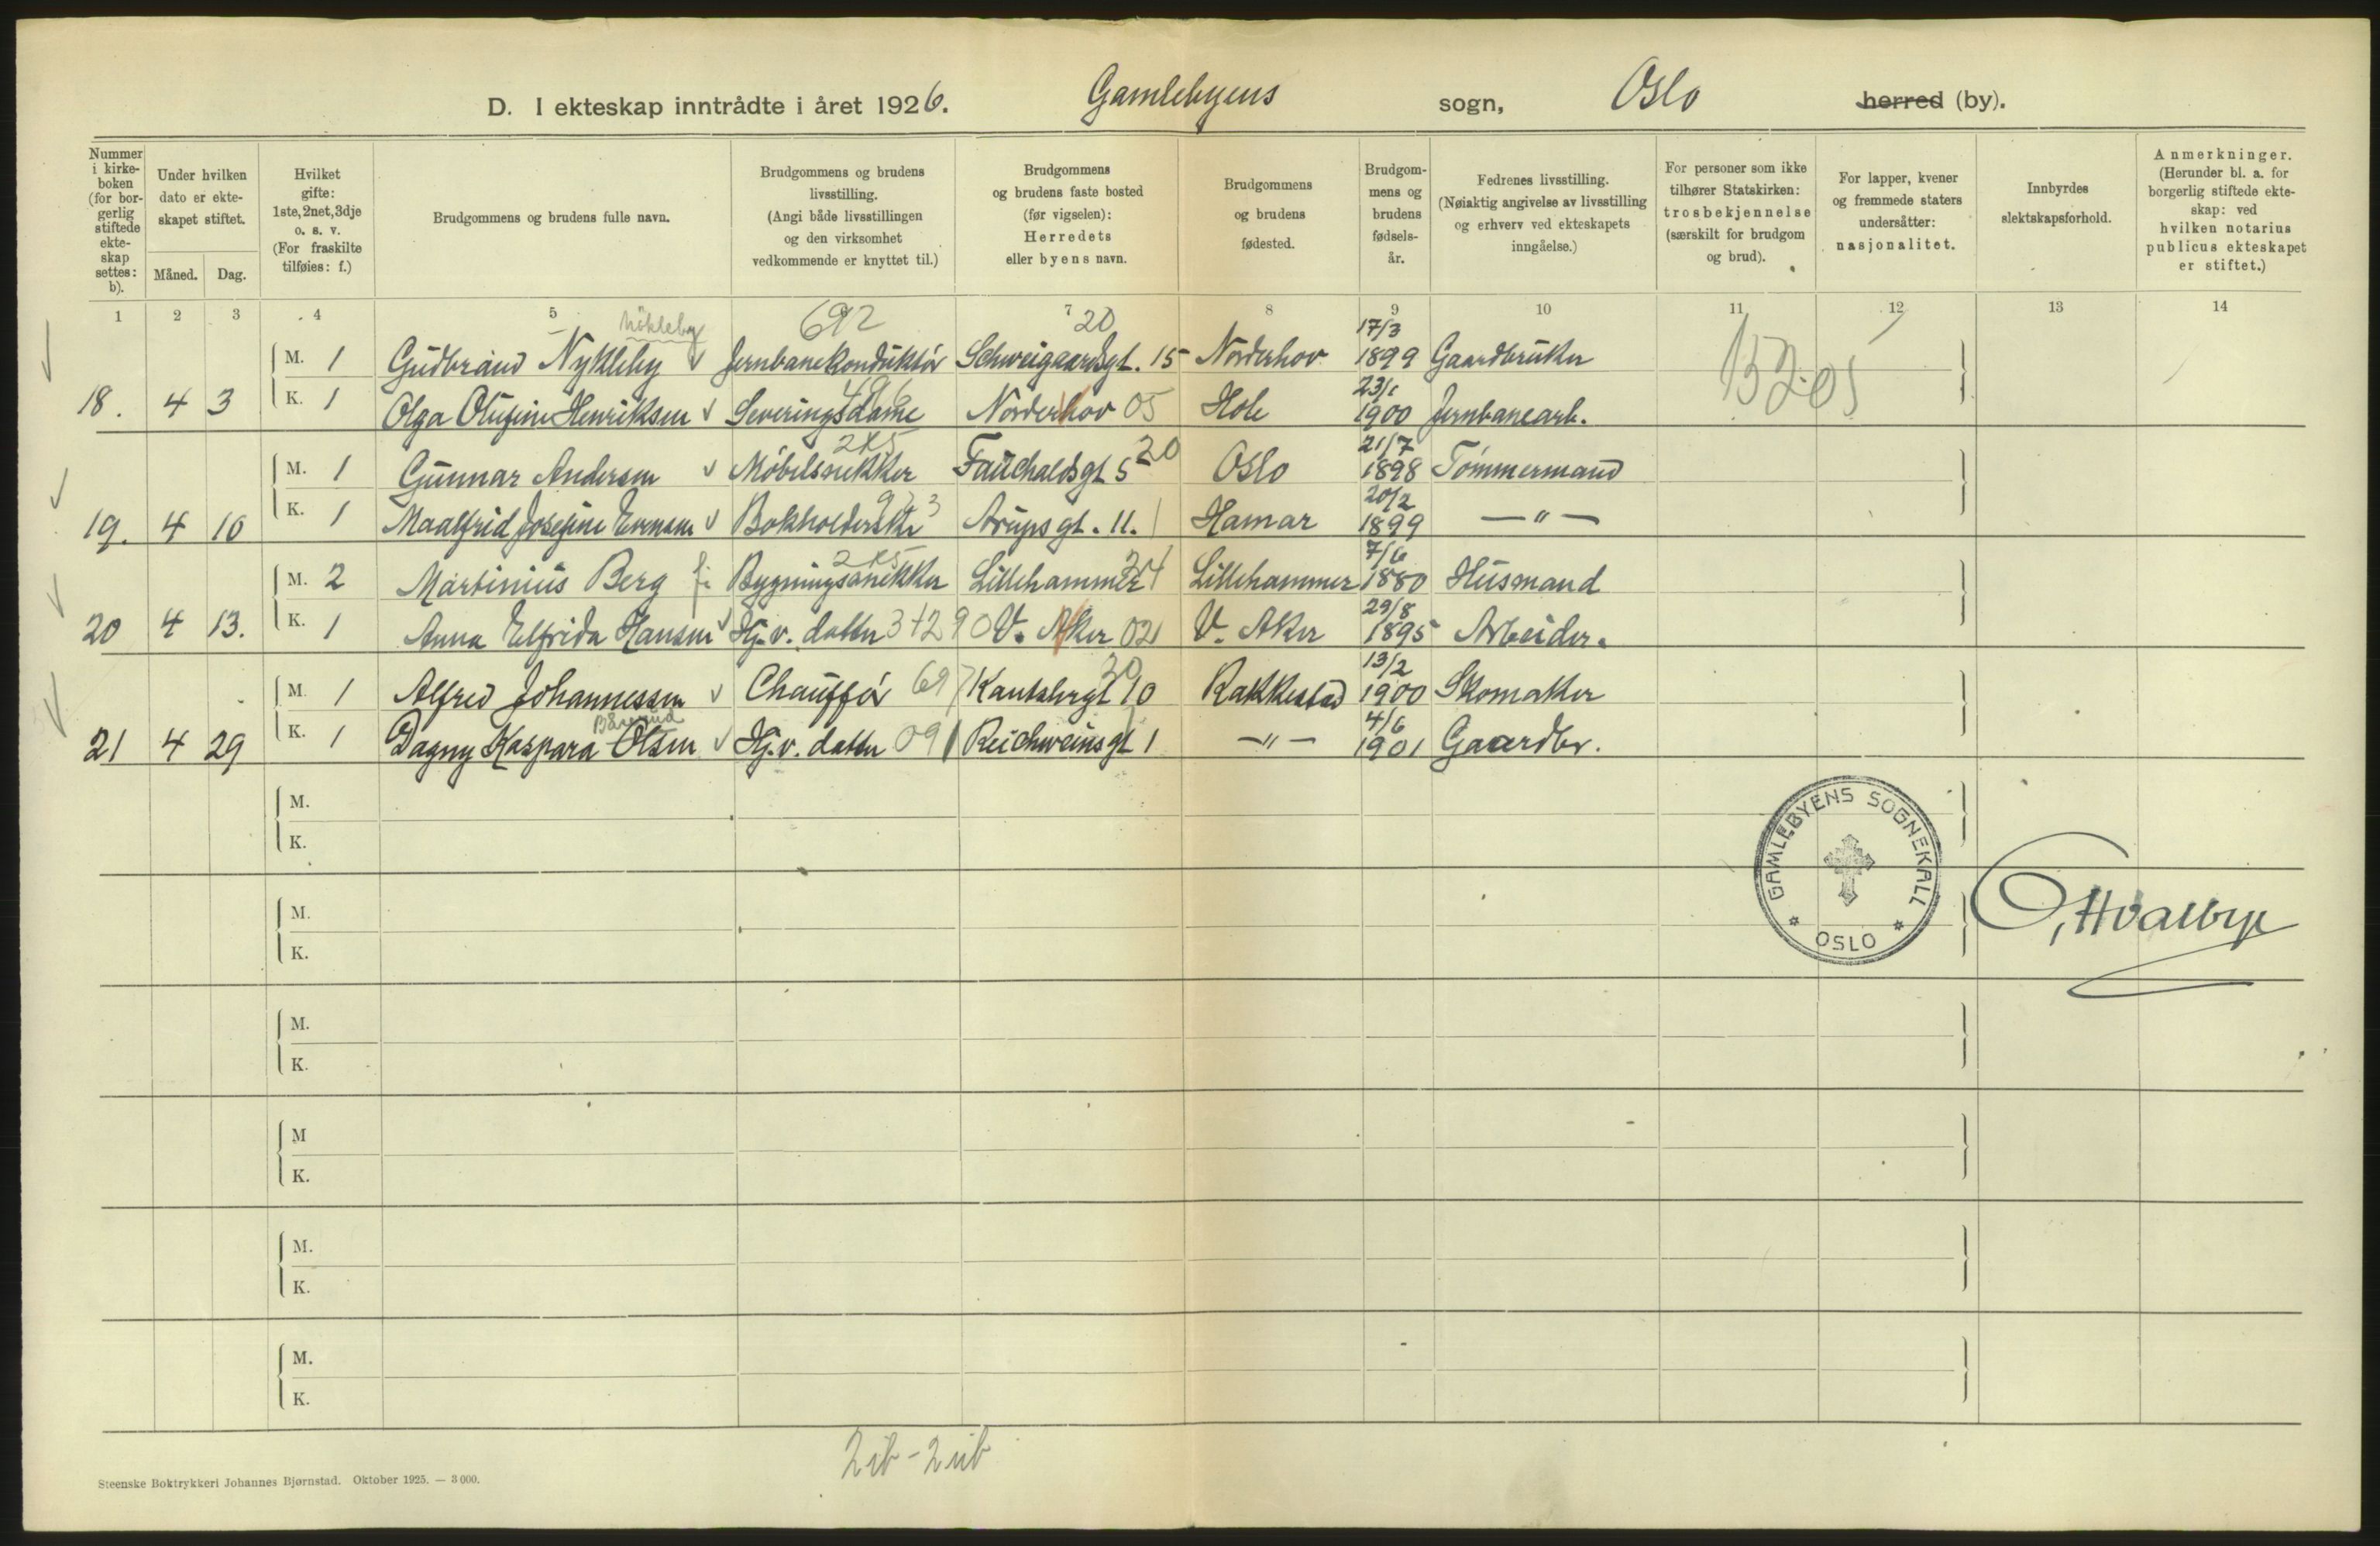 D. I ekteskap inntrådte i året 1926. Gamlebyens sogn, Oslo herred (by).
Nummer i kirke-boken (for bor-gerlig stiftede ekte-skap settes: b).
Under hvilken dato er ekte-skapet stiftet.
Måned. Dag.
Hvilket gifte: 1ste, 2net, 3dje o. s. v. (For fraskilte tilføies: f.)
Brudgommens og brudens fulle navn.
Brudgommens og brudens livsstilling. (Angi både livsstillingen og den virksomhet vedkommende er knyttet til.)
Brudgommens og brudens faste bosted (før vigselen): Herredets eller byens navn.
Brudgommens og brudens fødested.
Brudgom-mens og brudens fødsels-år.
Fedrenes livsstilling. (Nøiaktig angivelse av livsstilling og erhverv ved ekteskapets inngåelse.)
For personer som ikke tilhører Statskirken: trosbekjennelse (særskilt for brudgom og brud).
For lapper, kvener og fremmede staters undersåtter: nasjonalitet.
Innbyrdes slektskapsforhold.
Anmerkninger. (Herunder bl. a. for borgerlig stiftede ekte-skap: ved hvilken notarius publicus ekteskapet er stiftet.)
1 2 3 4 5 6 7 8 9 10 11 12 13 14
Nökleby 692 20 17/3
M. 1 Gudbrand Nykleby Jernbanekonduktör Schweigaardsgt. 15 Norderhov 1899 Gaardbruker
496 23/1
18. 4 3 K. 1 Olga Olufine Henriksen Serveringsdame Norderhov 05 Hole 1900 Jernbanearb.
152-05
245 20 21/7
M. 1 Gunnar Andersen Möbelsnekker Fauchaldsgt 5 Oslo 1898 Tömmermand
973 20/2
19. 4 10 K. 1 Maalfrid Josefine Evensen Bokholderske Arupsgt. 11. Hamar 1899 — " —
245 24 7/6
M. 2 Martinius Berg f. Bygningssnekker Lillehammer Lillehammer 1880 Husmand
29/8
20 4 13. K. 1 Anna Elfrida Hansen Hj.v. datter 3+290 V. Aker 021 V. Aker 1895 Arbeider.
20 13/2
M. 1 Alfred Johannessen Chaufför 697 Kanslergt 10 Rakkestad 1900 Skomaker
Bårerud 4/6
21 4 29 K. 1 Dagny Kaspara Olsen Hj.v. datter 091 Reichweinsgt 1 — " — 1901 Gaardbr.
M.
K.
GAMLEBYENS SOGNEKALL
OSLO
M.
K.
Hvalbye
M.
K.
M
K.
M.
K.
M.
K.
2ib - 2ub
Steenske Boktrykkeri Johannes Bjørnstad. Oktober 1925. — 3 000.